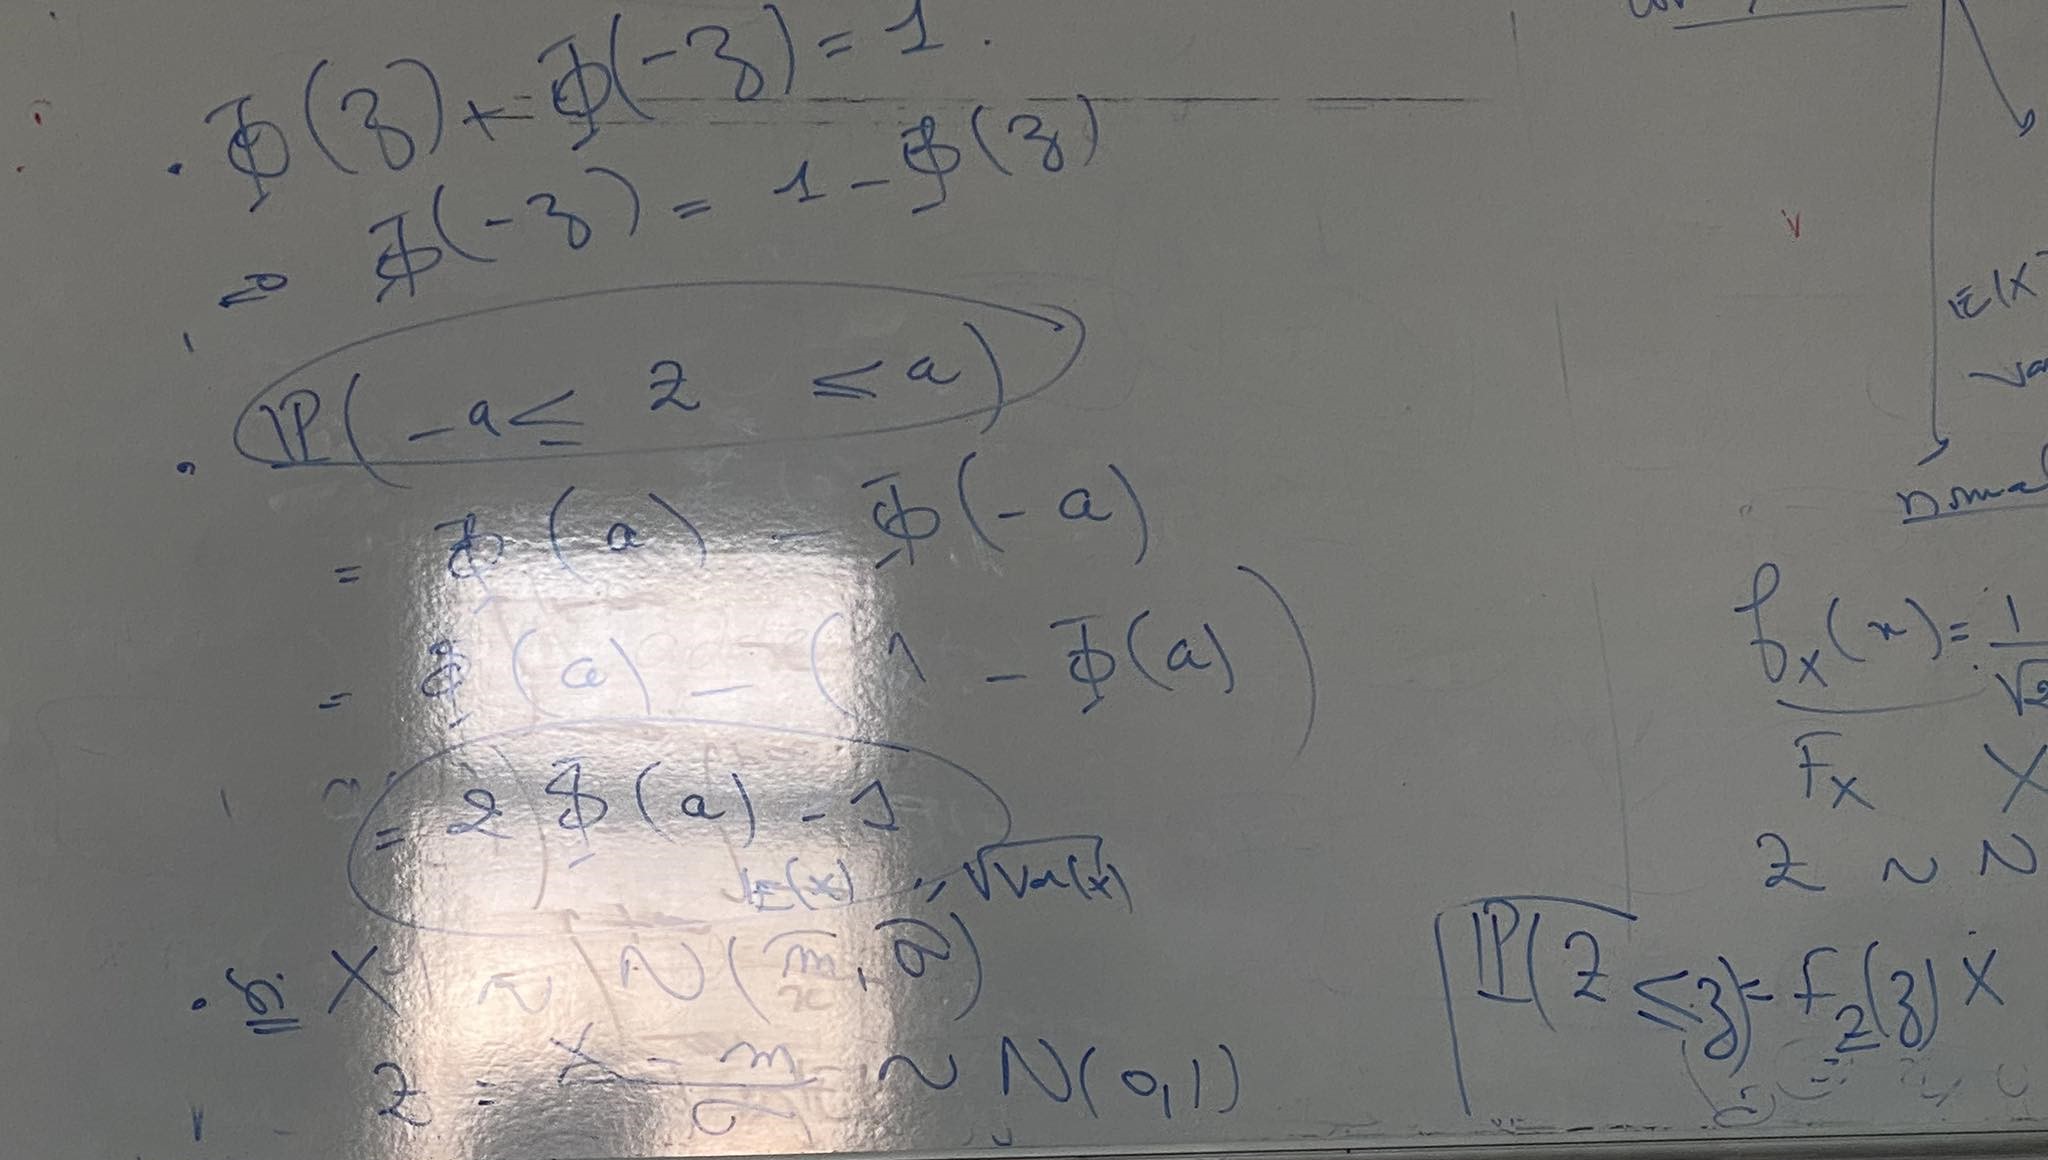 . Φ(z) + Φ(-z) = 1.
⇒ Φ(-z) = 1 - Φ(z)
. IP(-a ≤ Z ≤ a)
= Φ(a) - Φ(-a)
= Φ(a) - (1 - Φ(a))
= 2 Φ(a) - 1
E(X) √Var(X)
. si X ~ N(m, σ)
Z = (X - m)/σ ~ N(0,1)
E(X
Va
f_X(x) = 1/√2
F_X X
Z ~ N
IP(Z ≤ z) = F_Z(z) X